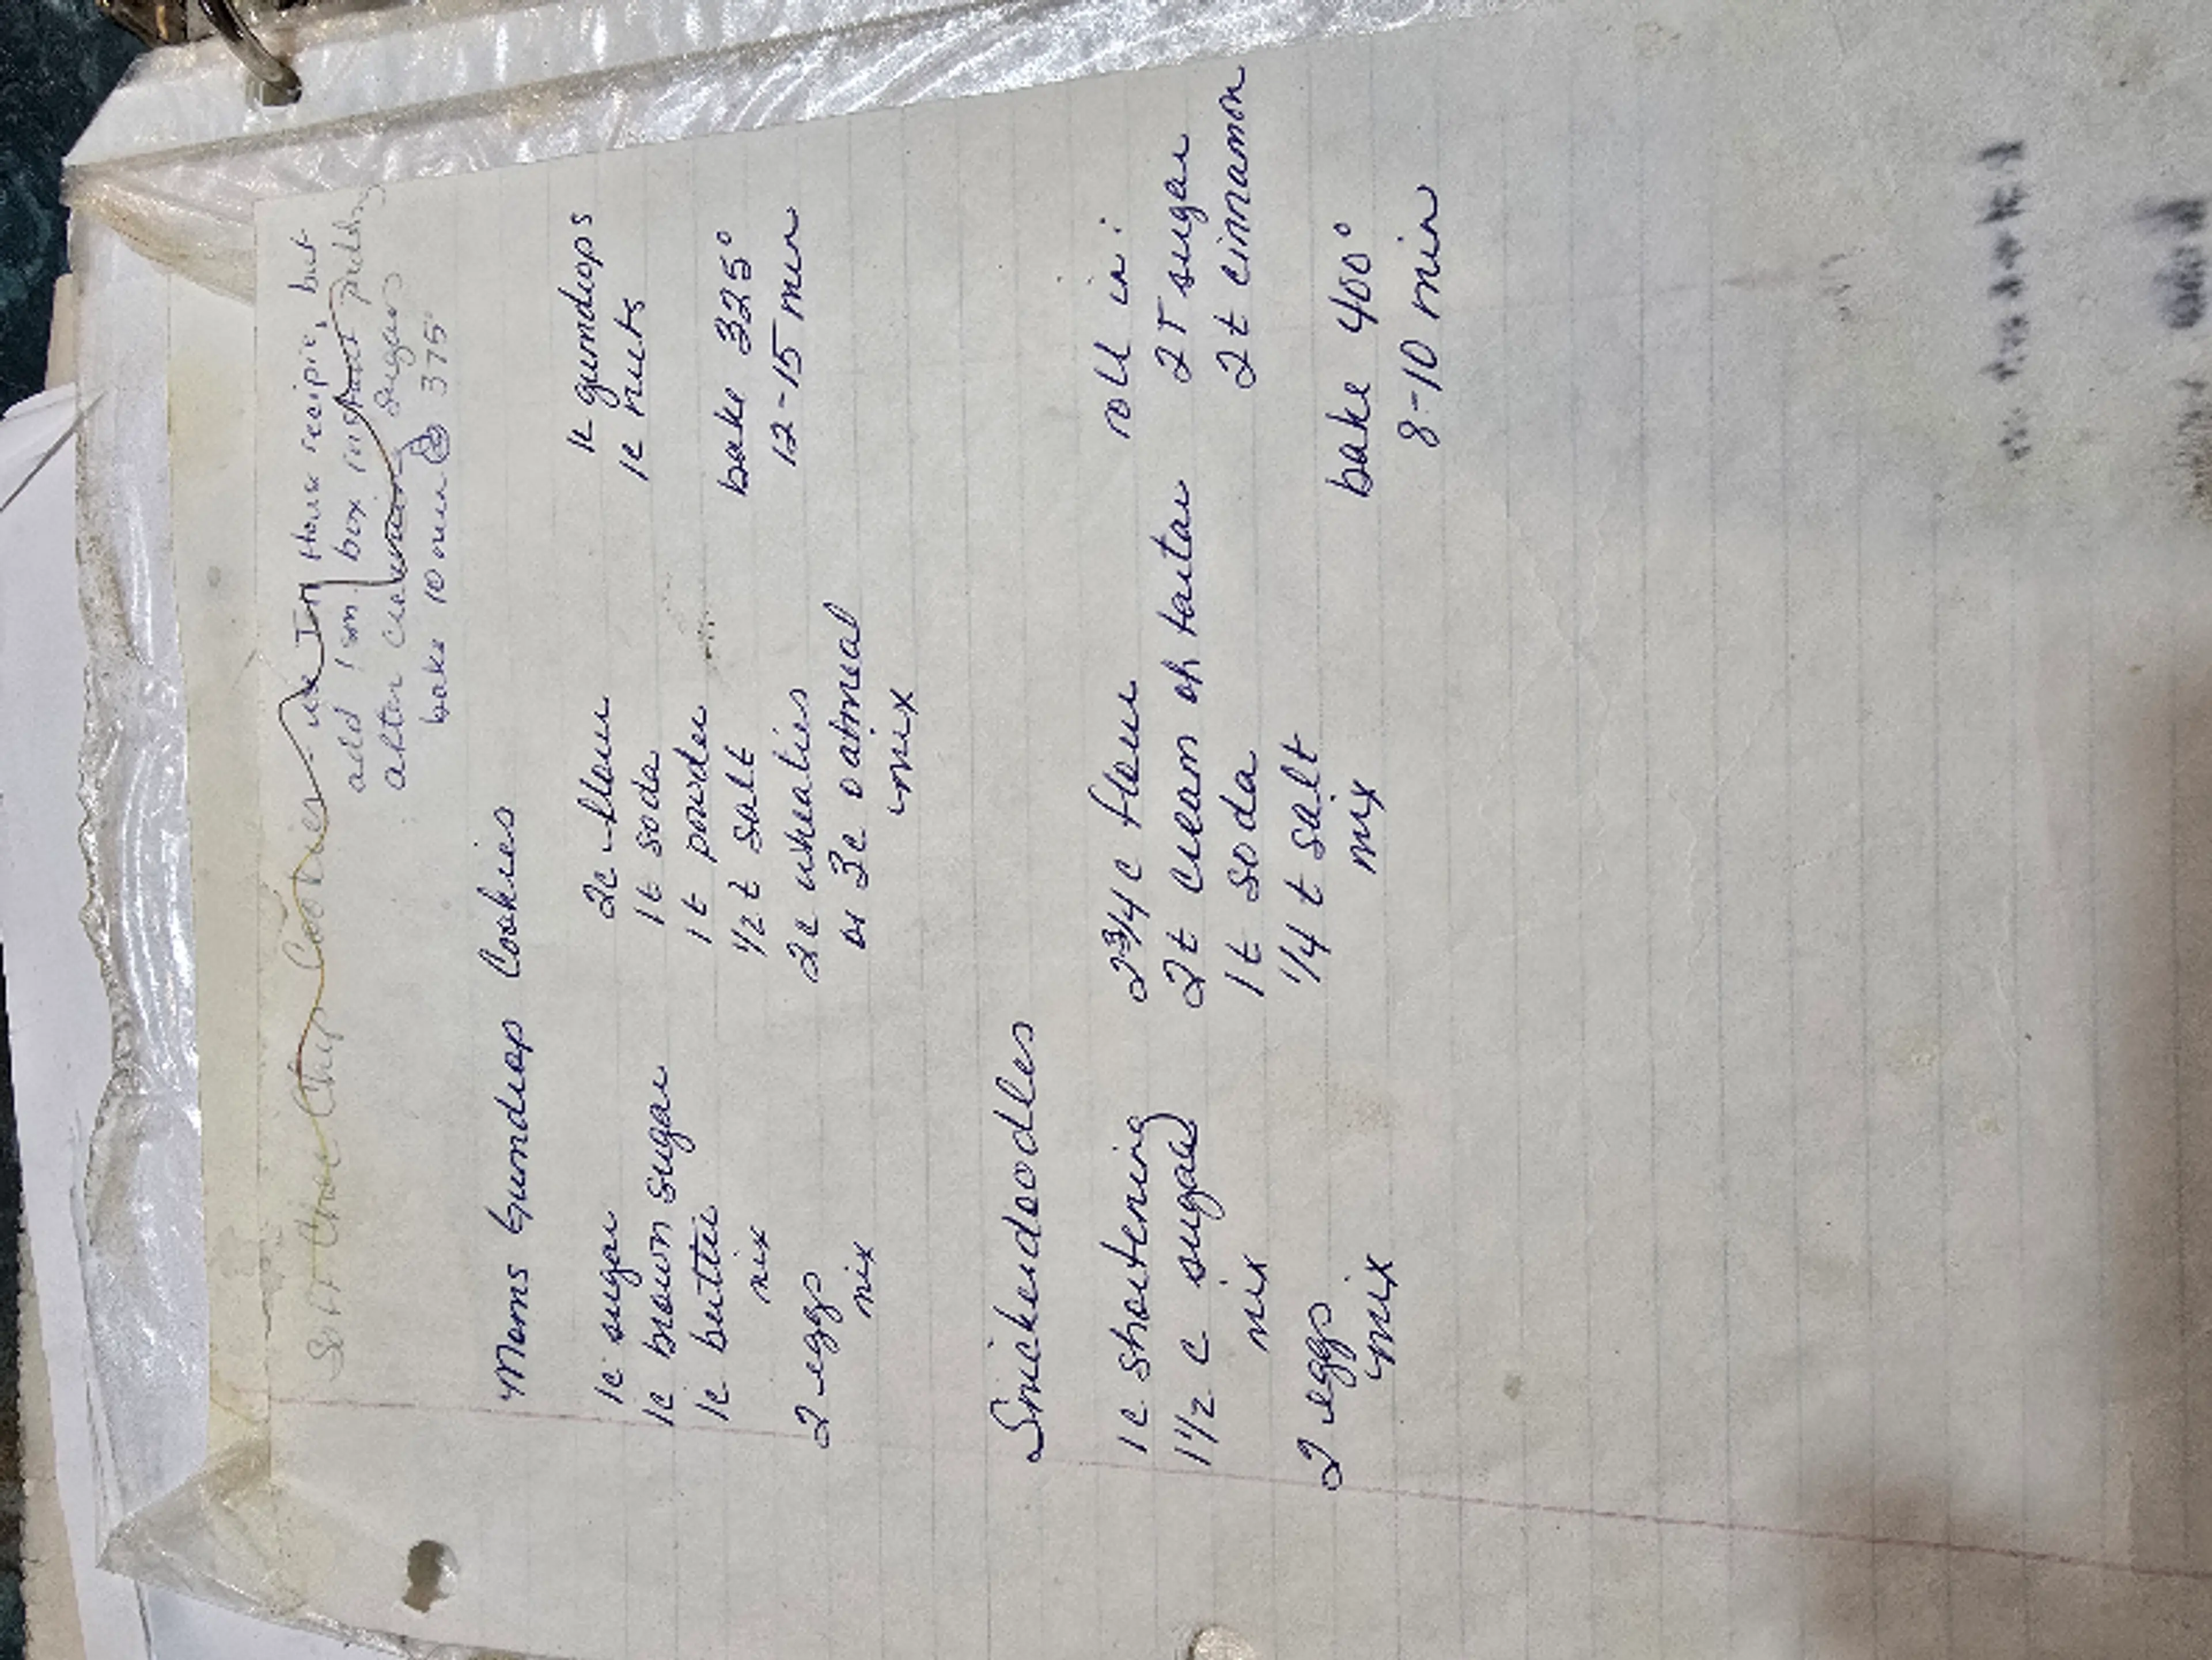 Soft Choc Chip Cookies - use In House recipie, but
add 1 sm box instant pudding
after creaming sugars
bake 10 min @ 375°
Moms Gumdrop Cookies
1c sugar
1c brown sugar
1c butter
mix
2 eggs
mix
2c flour
1t soda
1t powder
1/2 t salt
2c wheaties
or 3c oatmeal
mix
1c gumdrops
1c nuts
bake 325°
12-15 min
Snickerdoodles
1c shortening
1 1/2 c sugar
mix
2 eggs
mix
2 3/4 c flour
2t cream of tartar
1t soda
1/4 t salt
mix
roll in:
2T sugar
2t cinnamon
bake 400°
8-10 min